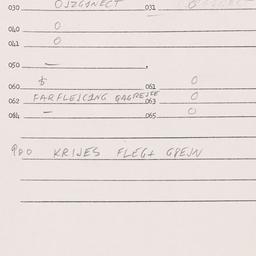 030 OJZGONECT 031 0
040 0
041 0
050 —
060 $ 061 0
062 FARFLEJCING GAGREJFE 063 0
064 — 065 0
900 KRIJES FLEG+ GPEJN